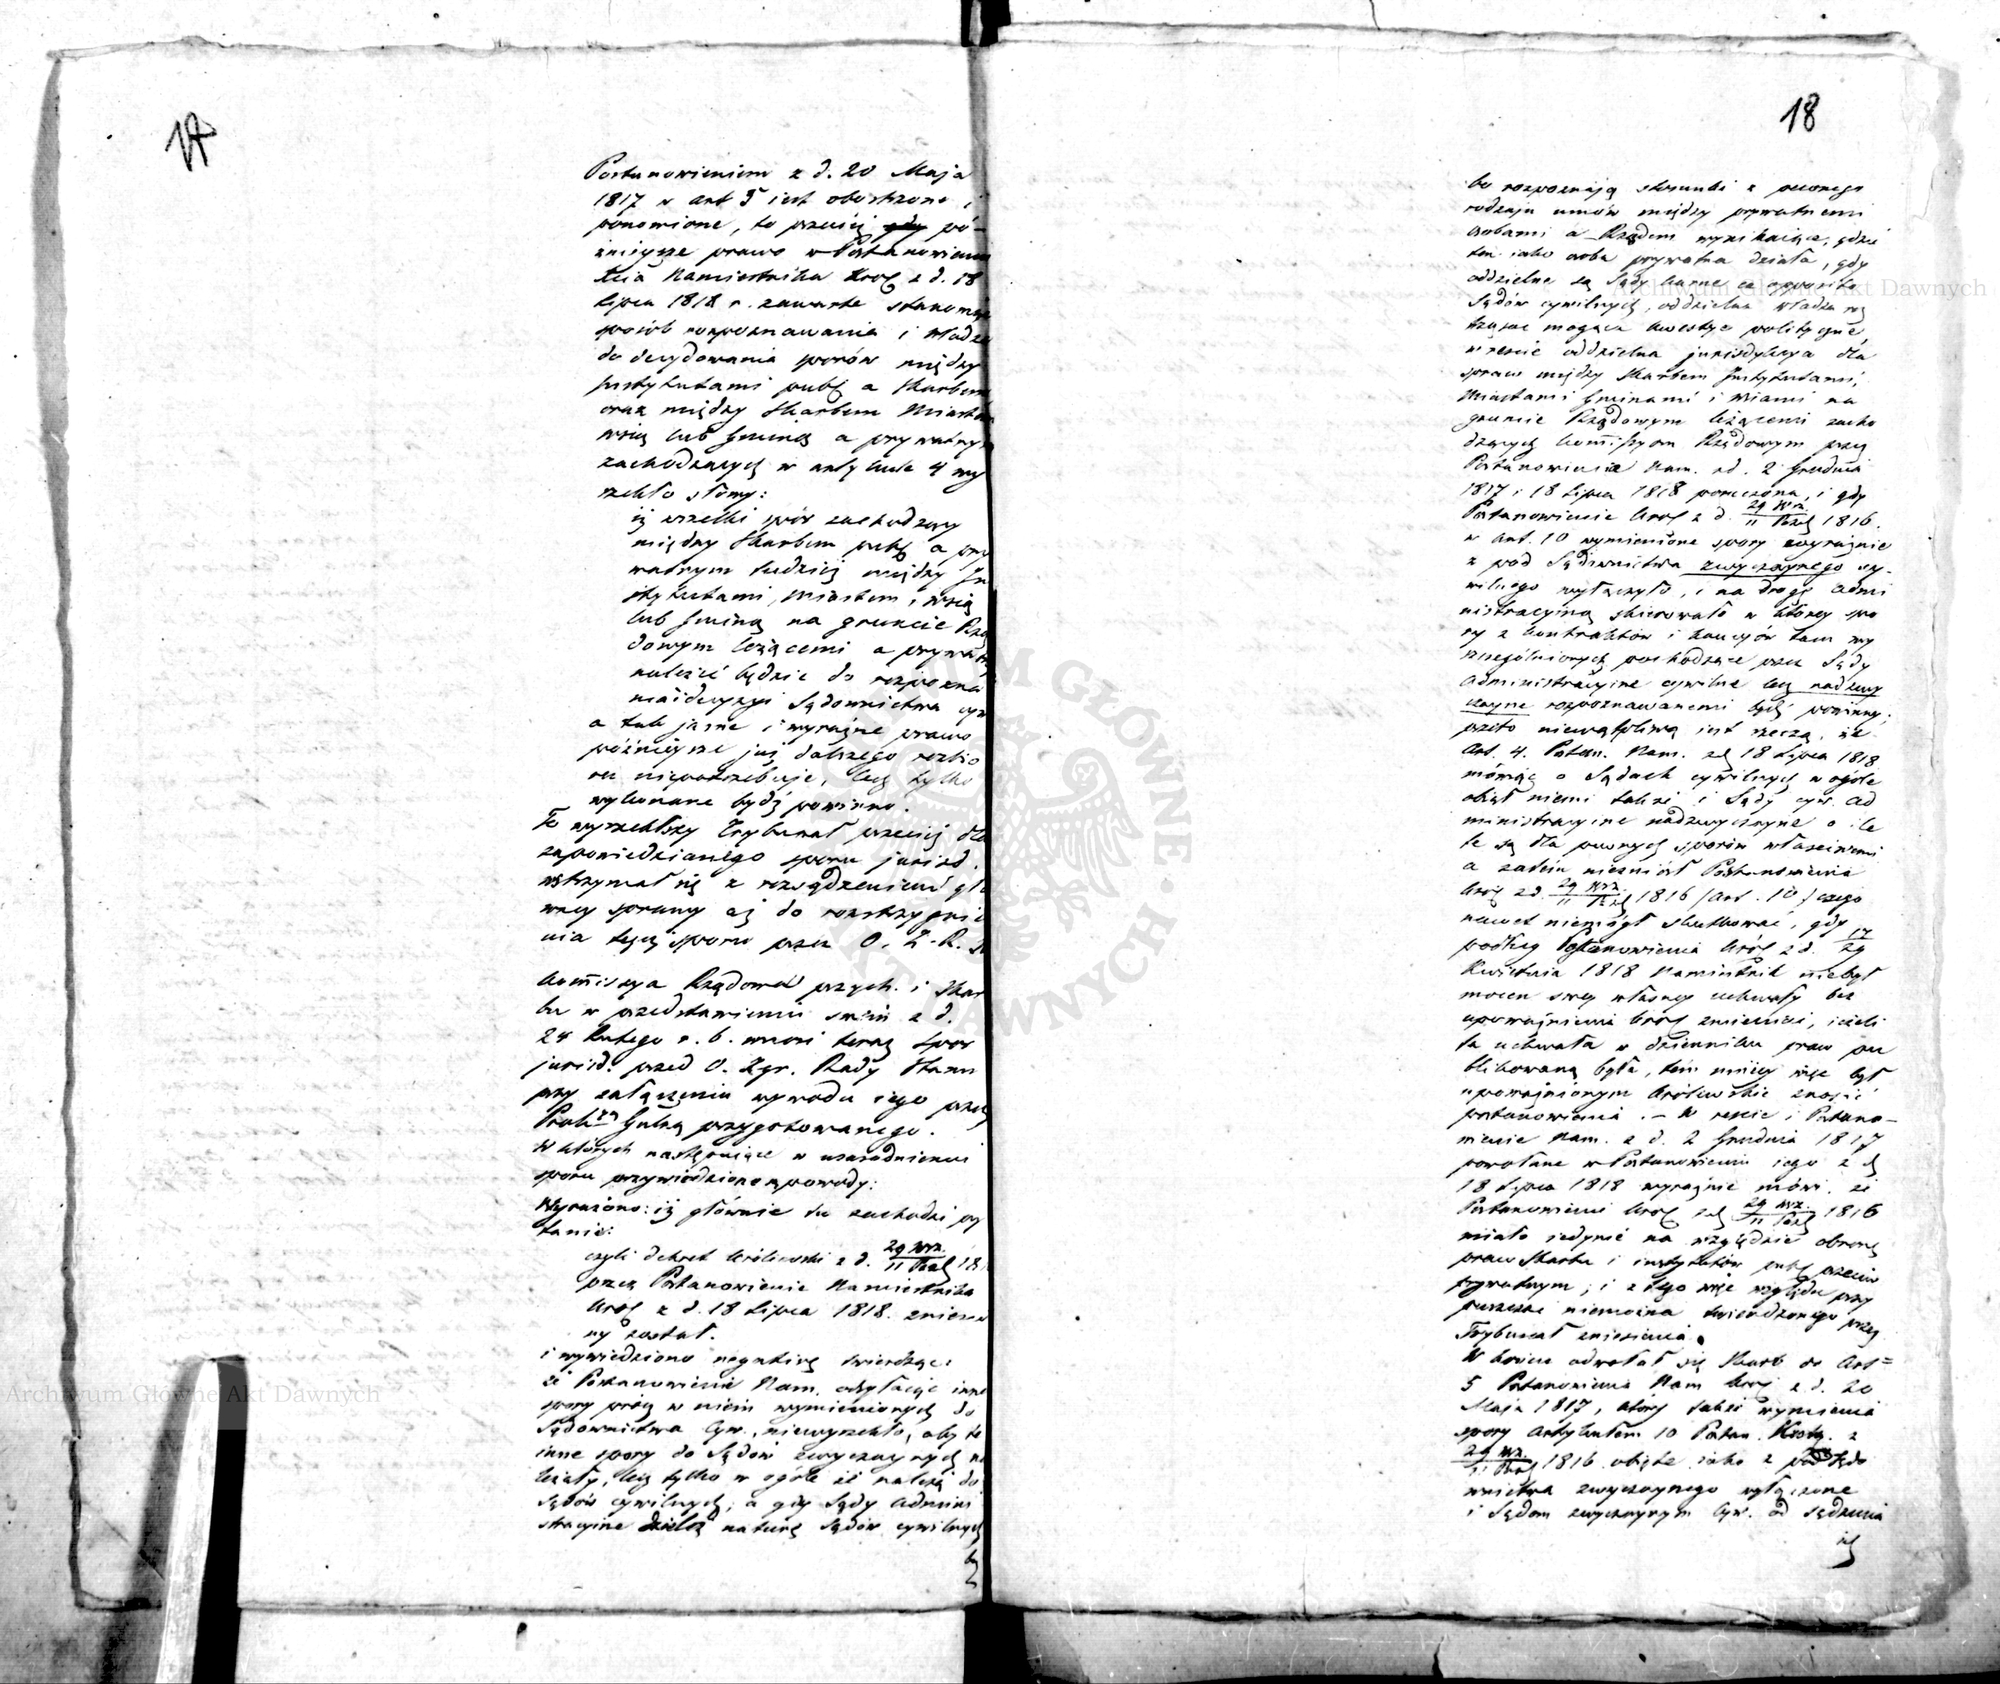 17
Postanowieniem z d. 20 Maja
1817 w art 5 iest obostrzone i
ponowione, to przecię gdy pó-
źnieysze prawo w Postanowieniu
Xcia Namiestnika Krol z d. 18
Lipca 1818 r. zawarte stanowiąc
sposób rozpoznawania i władzę
do decydowania sporów między
Instytutami publ a Skarbem
oraz między Skarbem Miastem
wsią lub Gminą a prywatnym
zachodzących w artykule 4 wy
rzekło słowy:
iż wszelki spór zachodzący
między Skarbem publ a pry
watnym tudzież między In
stytutami, Miastem, wsią
lub Gminą na gruncie Rzą
dowym leżącemi a prywat
należeć będzie do rozpozna
nia i decyzyi Sądownictwa cyw
a tak jasne i wyraźne prawo
późnieysze już dalszego rozbio
ru niepotrzebuje, lecz tylko
wykonane bydź powinno.
To wyrzekłszy Trybunał przecież dla
zapowiedzianego sporu jurisd.
wstrzymał się z rozsądzeniem głó
wney sprawy aż do rozstrzygnie
nia tegoż sporu przez O. Z. R. S
Kommissya Rządowa przych. i Skar
bu w przedstawieniu swém z d.
24 Lutego r. b. wnosi teraz spor
jurisd. przed O. Zgr. Rady Stanu
przy załączeniu wywodu iego przez
Prok Gulą przygotowanego.
W których następuiące w uzasadnieniu
sporu przywiedziono powody:
Wyrażono: iż głównie tu zachodzi py
tanie:
czyli dekret królewski z d. 29 Wrz. / 11 Paźd 181
przez Postanowienie Namiestnika
Krol z d. 18 Lipca 1818. zniesio
ny został.
i wywiedziono negative twierdząc:
że Postanowienie Nam. odsyłaiąc inne
spory prócz w niém wymienionych do
Sądownictwa Cyw., niewyrzekło, aby te
inne spory do Sądów zwyczaynych na
leżały, lecz tylko w ogóle iż należą do
Sądów cywilnych; a gdy Sądy Admini
stracyine dzielą naturę Sądów cywilnych
18
bo rozpoznają stosunki z pewnego
rodzaju umów między prywatnemi
osobami a Rządem wynikaiące, gdzie
ten iako osoba prywatna działa, gdy
oddzielne są Sądy karne ex opposito
Sądów cywilnych, oddzielna władza roz
trząsać mogąca kwestye polityczne,
wreszcie oddzielna jurisdykcya dla
spraw między Skarbem Instytutami,
Miastami Gminami i Wsiami na
gruncie Rządowym leżącemi zacho
dzących Kommissyom Rządowym przez
Postanowienie Nam. z d. 2 Grudnia
1817 i 18 Lipca 1818 poruczona, i gdy
Postanowienie Krol z d. 29 Wrz. / 11 Paźd 1816.
w Art. 10 wymienione spory wyraźnie
z pod Sądownictwa zwyczaynego cy-
wilnego wyłączyło, i na drogę Admi
nistracyiną skierowało w którey spo
ry z kontraktów i kaucyów tam wy
szczególnionych pochodzące przez Sądy
administracyine cywilne lecz nadzwy
czayne rozpoznawanemi bydź powinny;
przeto niewątpliwą iest rzeczą, że
Art. 4. Postan. Nam. z d 18 Lipca 1818
mówiąc o Sądach cywilnych w ogóle
obiął niemi także i Sądy cyw. ad
ministracyine nadzwyczayne o ile
te są dla pewnych sporów właściwemi
a zatém niezniósł Postanowienia
Krol z d 29 Wrz. / 11 Paźd 1816 (art. 10) czego
nawet niemógł skutkować, gdy
podług Postanowienia Król z d. 17/29
Kwietnia 1818 Namiestnik niebył
mocen swey własney uchwały bez
upoważnienia Krol zmieniać, ieżeli
ta uchwała w dzienniku praw pu
blikowaną była, tém mniey więc był
upoważnionym Królewskie znosić
postanowienia. - W reście i Postano-
wienie Nam. z d. 2 Grudnia 1817
powołane w Postanowieniu iego z d
18 Lipca 1818 wyraźnie mówi, że
Postanowienie Krol z d 29 Wrz. / 11 Paźd 1816
miało iedynie na względzie obronę
praw Skarbu i instytutów publ przeciw
prywatnym; i z tego więc względu przy
puszczać niemożna twierdzonego przez
Trybunał zniesienia.
W końcu odwołał się Skarb do Art=
5 Postanowienia Nam Krol z d. 20
Maja 1817, który także wymienia
spory Artykułem 10 Postan. Krol. z
29 Wrz. / 11 Paźd 1816 obięte iako z pod Sądo
wnictwa zwyczaynego wyłączone
i Sądom zwyczaynym Cyw. od sądzenia
ich
Archiwum Główne Akt Dawnych
Archiwum Główne Akt Dawnych